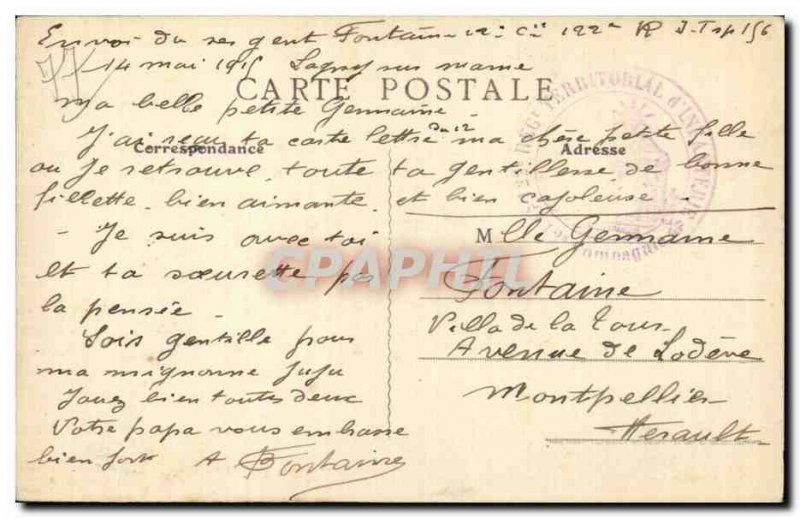 Envoi du sergent Fontaine 12e Cie 122e RI T
14 mai 1915 Lagny sur marne
CARTE POSTALE
ma belle petite Germaine
J'ai reçu ta carte lettre du 12 ma chère petite fille
Correspondance
Adresse
ou je retrouve toute ta gentillesse de bonne
fillette bien aimante et bien cajoleuse
- Je suis avec toi
et ta sœurette par
la pensée -
Sois gentille pour
ma mignonne Juju
Jouez bien toutes deux
Votre papa vous embrasse
bien fort A Fontaine
Mlle Germaine
Fontaine
Villa de la Tour
Avenue de Lodève
Montpellier
Hérault
TERRITORIAL d'INFANTERIE
Compagnie
CPAPHIL